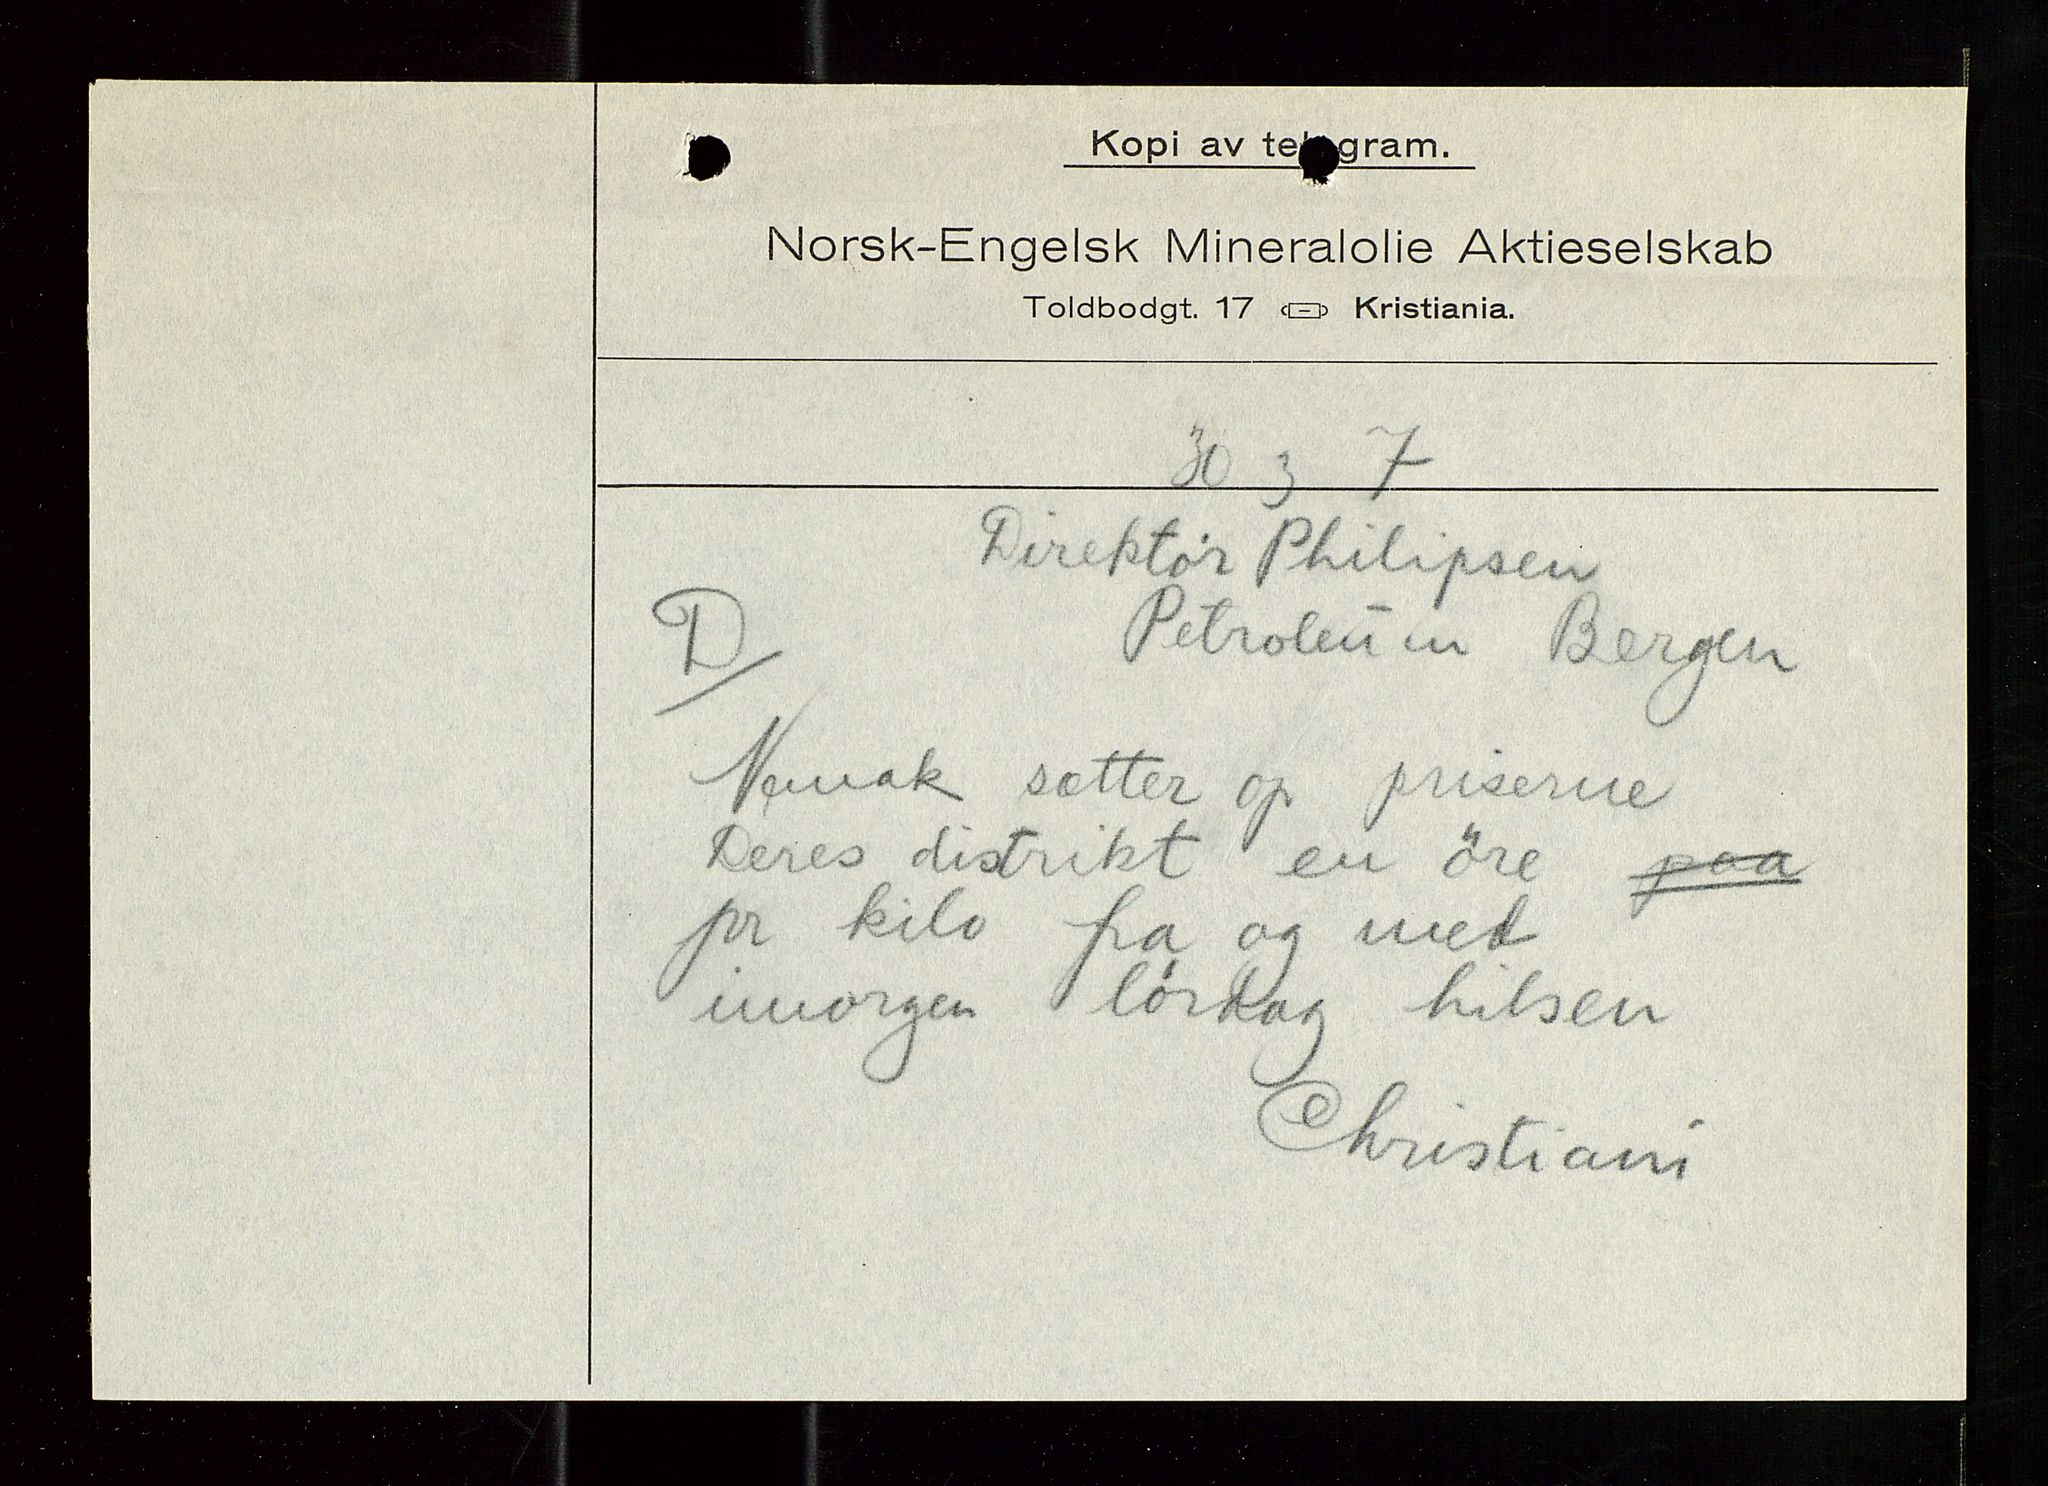 Kopi av telegram.
Norsk-Engelsk Mineralolie Aktieselskab
Toldbodgt. 17 Kristiania.
30 3 7
Direktör Philipsen
D Petroleum Bergen
Nemak sætter op priserne
Deres distrikt en öre paa
pr kilo fra og med
imorgen lördag hilsen
Christiani